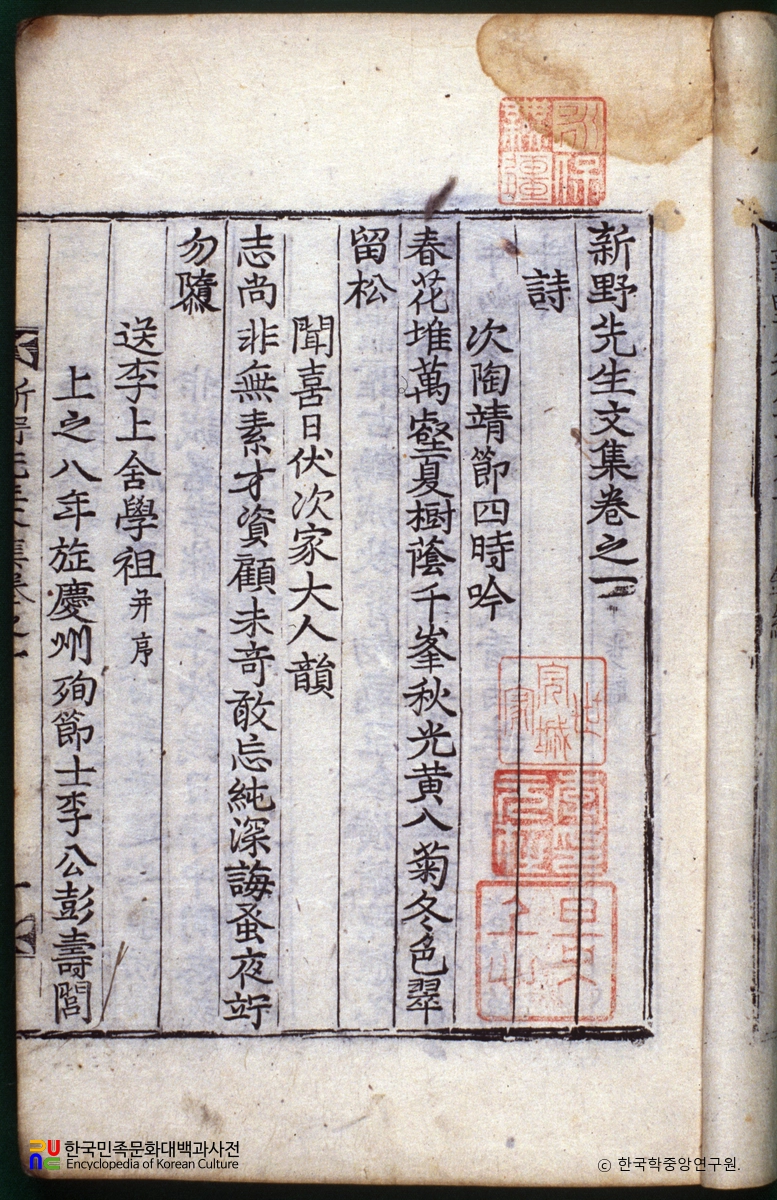 新野先生文集卷之一
詩
次陶靖節四時吟
春花堆萬壑夏樹蔭千峯秋光黄入菊冬色翠
留松
聞喜日伏次家大人韻
志尚非無素才資顧未奇敢忘純深誨蚤夜竚
勿隳
送李上舍學祖 并序
上之八年旌慶州殉節士李公彭壽閭
한국민족문화대백과사전
Encyclopedia of Korean Culture
ⓒ 한국학중앙연구원.